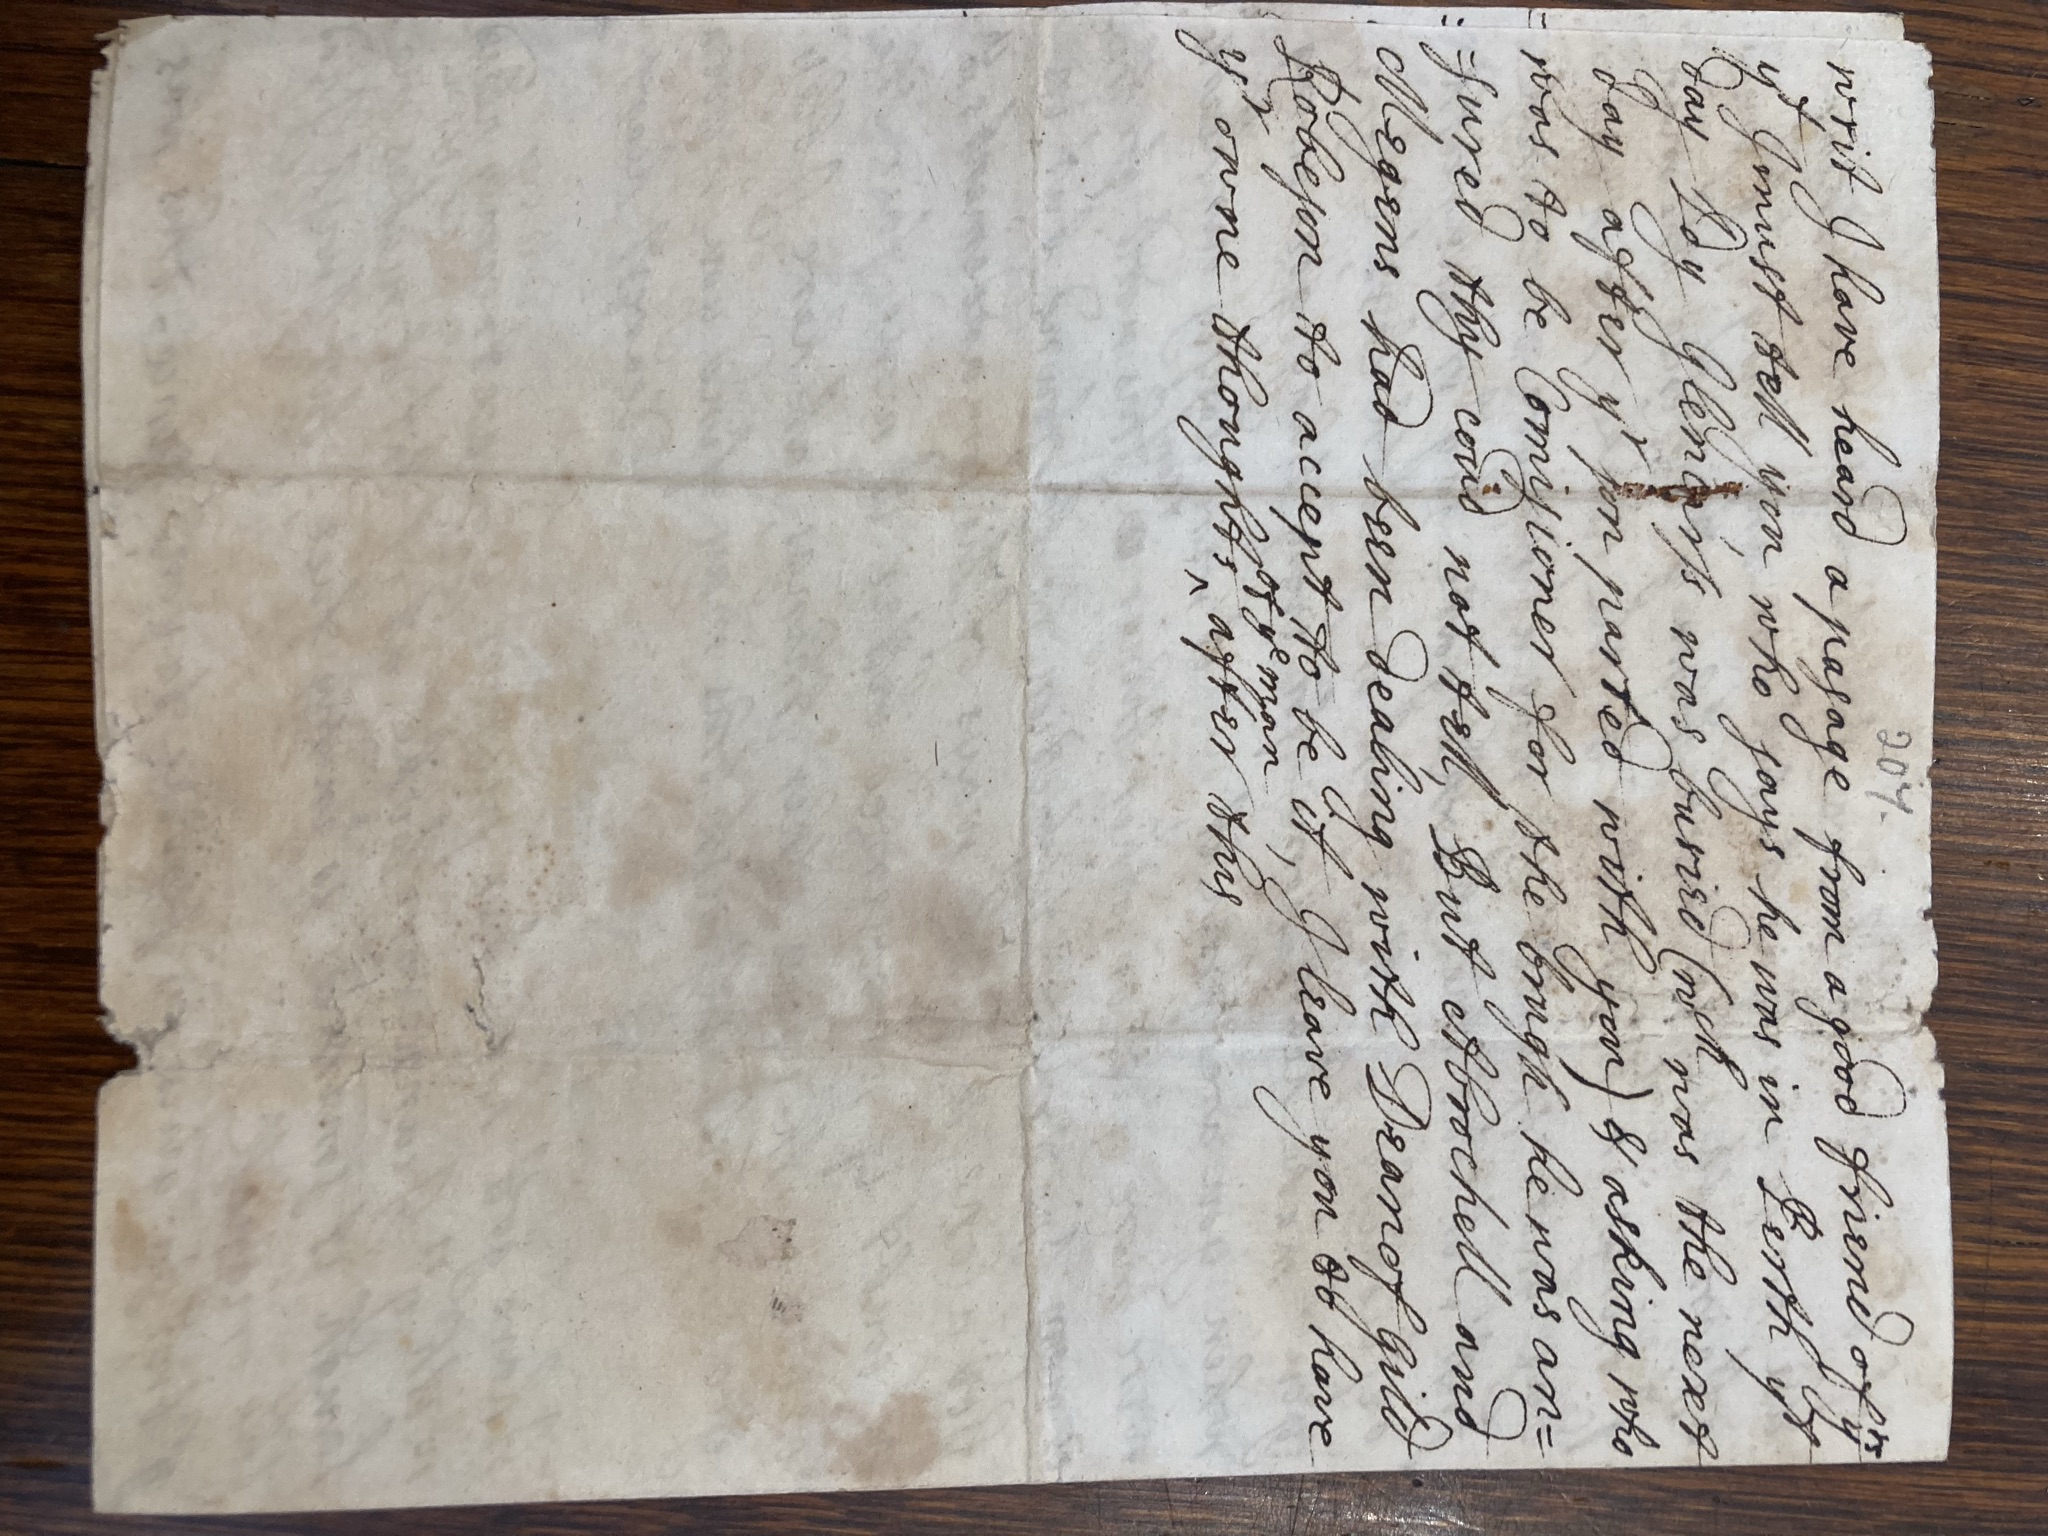 207.
writ I have heard a pasage from a good friend of yrs
yt I must tell you, who says he was in Perth yt
day Ldy Glencarss was buried (wch was the next
day after yr son parted with you) & asking who
was to be Comisioner for the brugh he was an=
=sured thy coud not tell, But Abrochell and
Megens had been dealing with Dean of Gild
Robeson to accept to be it, I leave you to have
of ye man
yr owne thoughts ^ after this